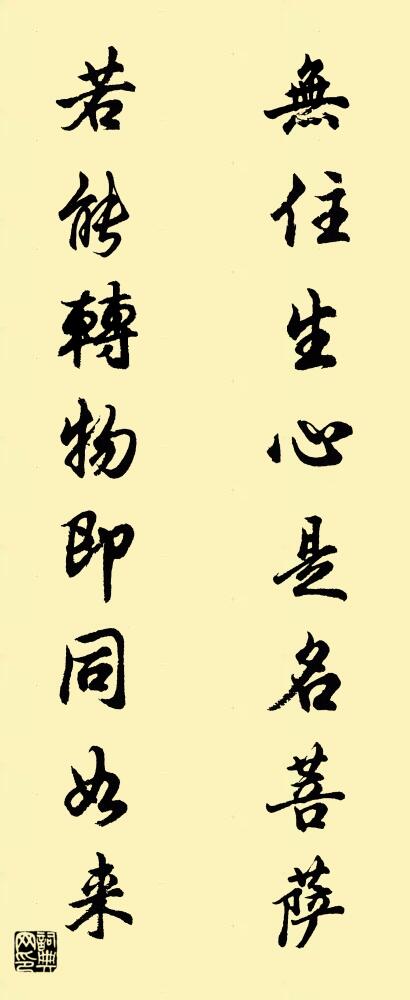 無住生心是名菩薩
若能轉物即同如来
詞典网印